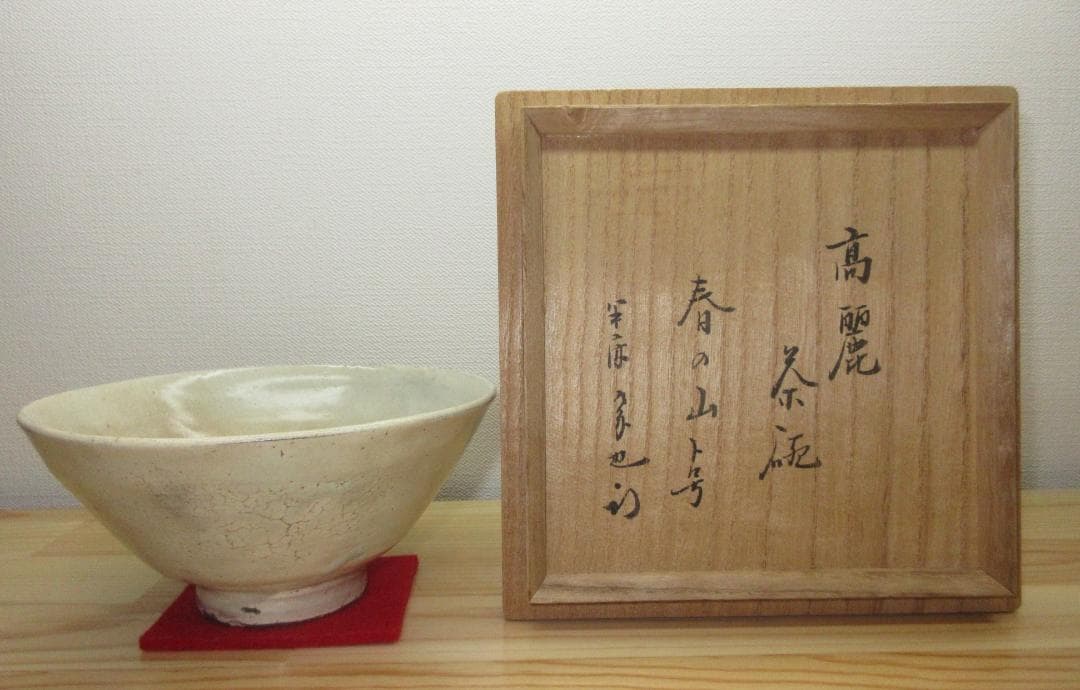 高麗
茶碗
春の山ト号